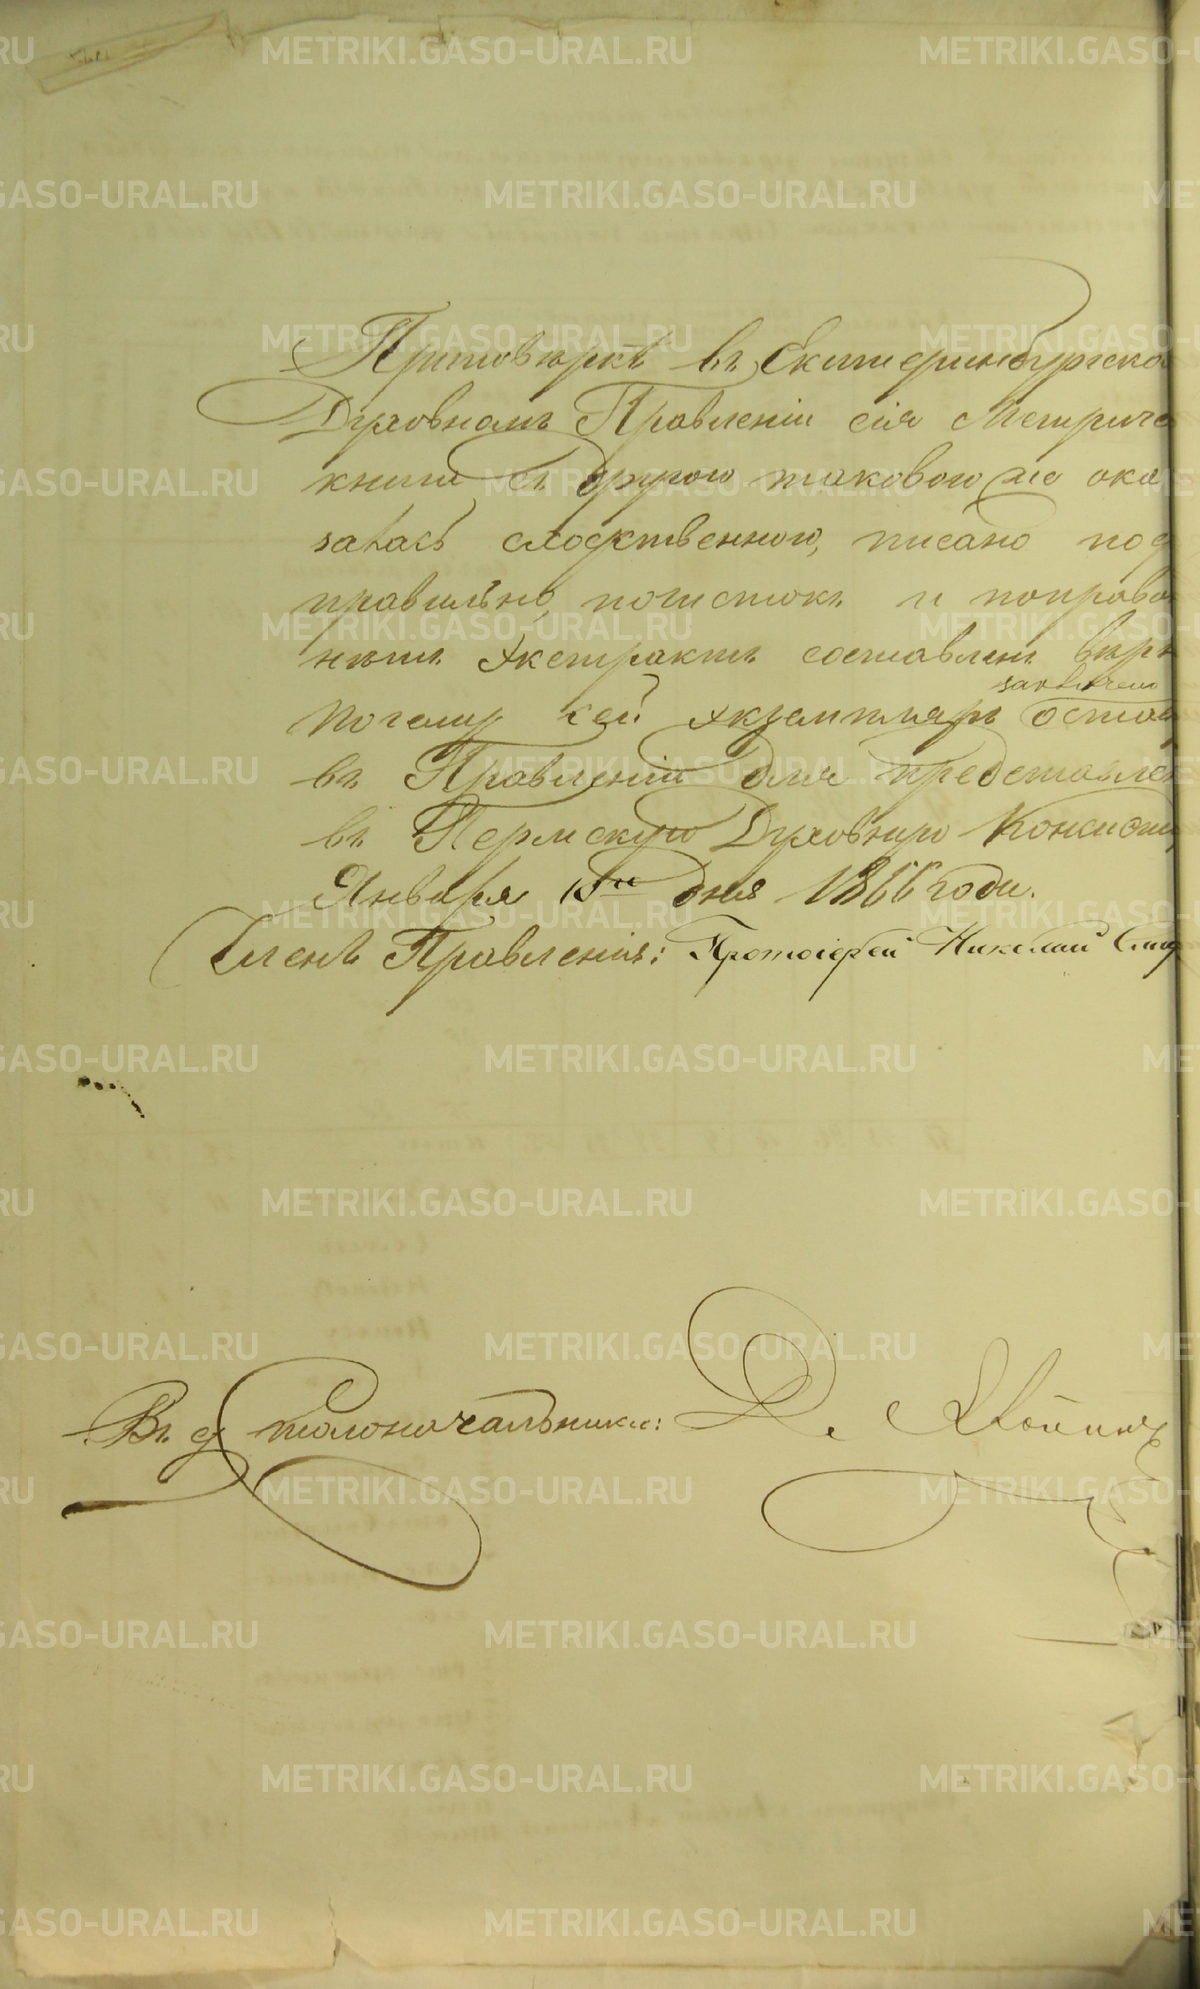 При повѣркѣ въ Екатеринбургско
Духовномъ Правленіи сія Метриче
книга съ другою таковою же ока
залась сходственною, писано по
правильно, почистокъ и поправо
нѣтъ Экстрактъ составленъ вѣрн
заключено
Почему сей экземпляръ остав
въ Правленіи для представлен
въ Пермскую Духовную Консист
Января 15го дня 1866 года.
Членъ Правленія: Протоіерей Николай
Въ д столоначальника: Д.
METRIKI.GASO-URAL.RU